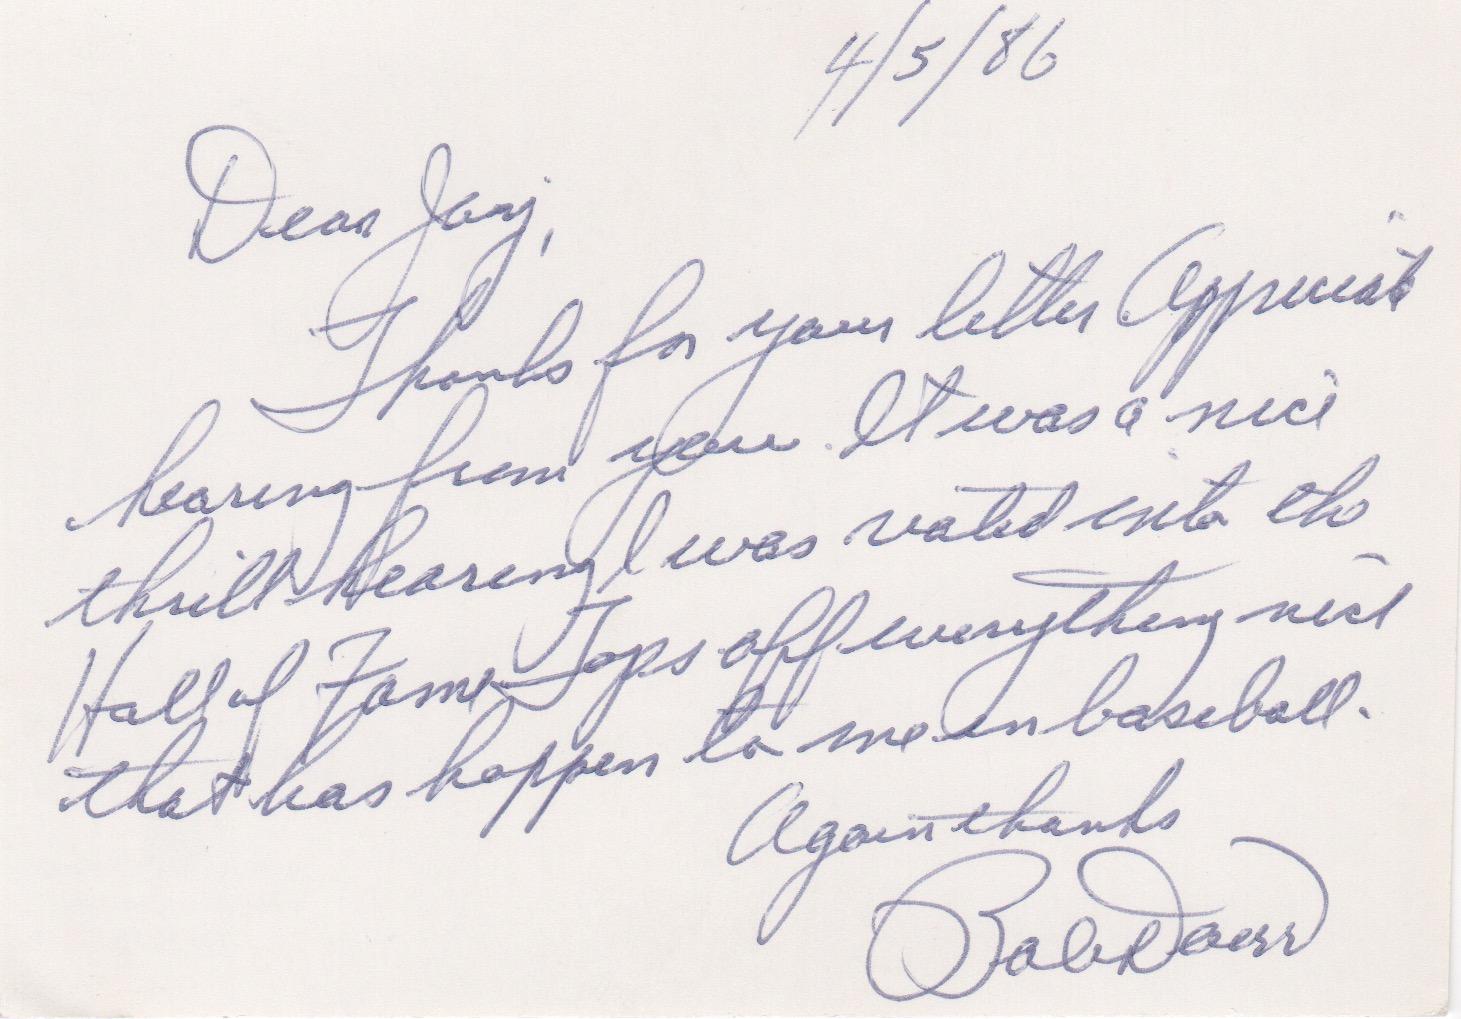 4/5/86
Dear Jay,
Thanks for your letter. Appreciate
hearing from you. It was a nice
thrill hearing I was voted into the
Hall of Fame. Tops off everything nice
that has happen to me in baseball.
Again thanks
Bob Doerr